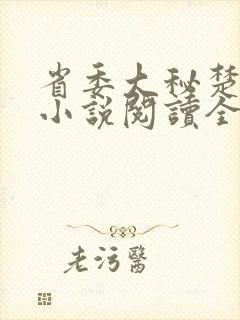 省委大秘楚
小說閱讀全
老污醫